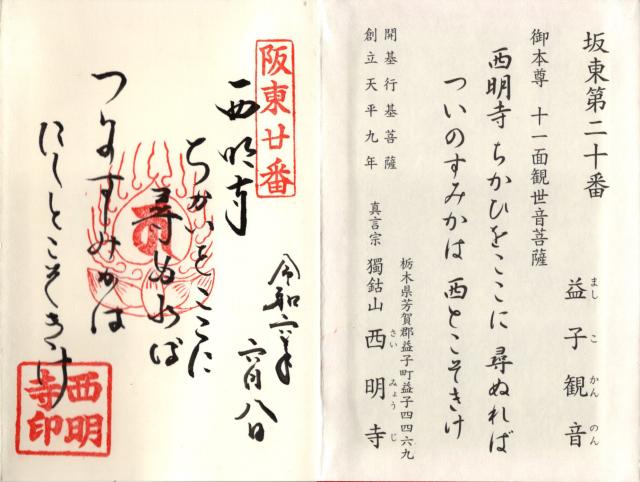 坂東第二十番
益子観音
ましこかんのん
御本尊 十一面観世音菩薩
西明寺 ちかひをここに 尋ぬれば
ついのすみかは 西とこそきけ
栃木県芳賀郡益子町益子四四六九
開基行基菩薩
創立天平九年
真言宗 獨鈷山 西明寺
さいみょうじ
阪東廿番
令和六年 六月八日
西明寺
ちかいをここに
尋ぬれば
つゐのすみかは
にしとこそきけ
西明寺印